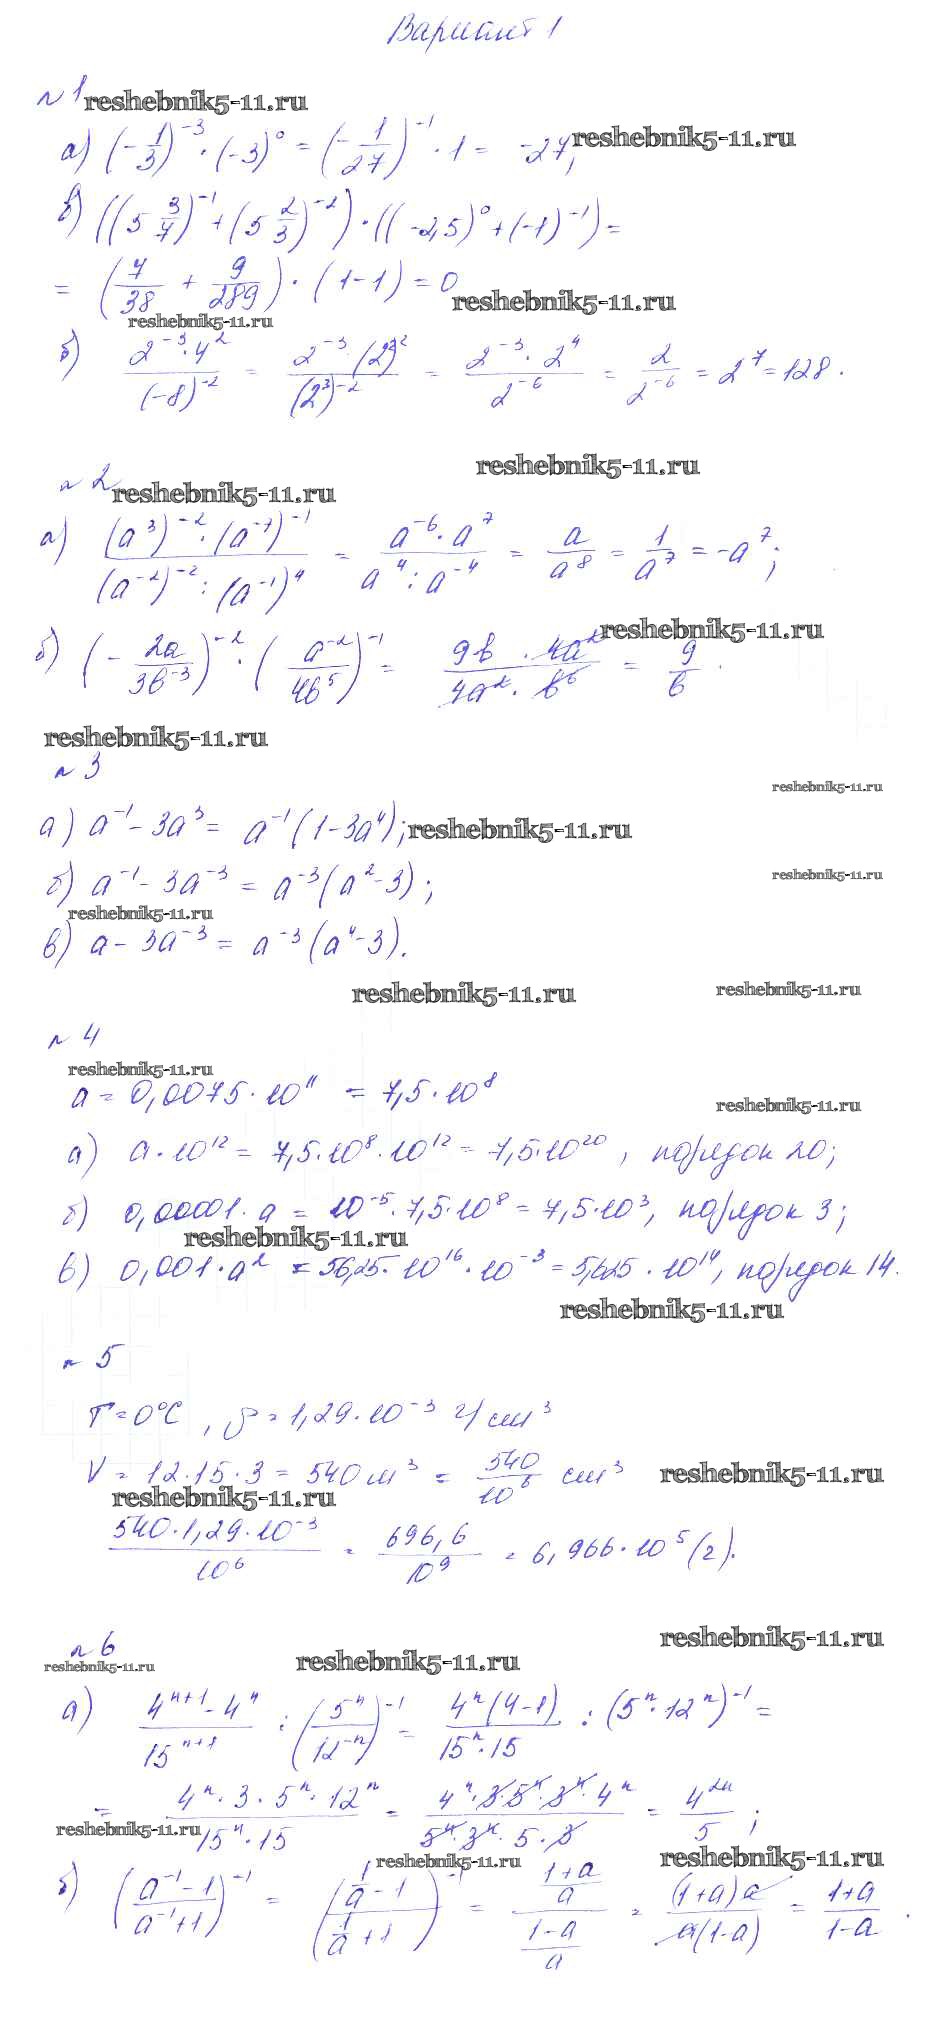 Вариант 1
№1 reshebnik5-11.ru
а) (-1/3)^-3 · (-3)^0 = (-1/27)^-1 · 1 = -27; reshebnik5-11.ru
в) ((5 3/7)^-1 + (5 2/3)^-2) · ((-2,5)^0 + (-1)^-1) =
= (7/38 + 9/289) · (1-1) = 0
reshebnik5-11.ru
reshebnik5-11.ru
б) (2^-3 · 4^2)/((-8)^-2) = (2^-3 · (2^2)^2)/((2^3)^-2) = (2^-3 · 2^4)/(2^-6) = 2/(2^-6) = 2^7 = 128.
reshebnik5-11.ru
№2 reshebnik5-11.ru
а) ((a^3)^-2 · (a^-7)^-1)/((a^-2)^-2 : (a^-1)^4) = (a^-6 · a^7)/(a^4 : a^-4) = a/a^8 = 1/a^7 = -a^7;
reshebnik5-11.ru
б) (-2a/(3b^-3))^-2 · (a^-2/(4b^5))^-1 = (9b · 4a^2)/(4a^2 · b^6) = 9/b.
reshebnik5-11.ru
№3
reshebnik5-11.ru
а) a^-1 - 3a^3 = a^-1(1-3a^4); reshebnik5-11.ru
reshebnik5-11.ru
б) a^-1 - 3a^-3 = a^-3(a^2-3);
reshebnik5-11.ru
в) a - 3a^-3 = a^-3(a^4-3).
reshebnik5-11.ru reshebnik5-11.ru
№4
reshebnik5-11.ru
a = 0,0075 · 10^11 = 7,5 · 10^8
reshebnik5-11.ru
а) a · 10^12 = 7,5 · 10^8 · 10^12 = 7,5 · 10^20, порядок 20;
б) 0,00001 · a = 10^-5 · 7,5 · 10^8 = 7,5 · 10^3, порядок 3;
reshebnik5-11.ru
в) 0,001 · a^2 = 56,25 · 10^16 · 10^-3 = 5,625 · 10^14, порядок 14.
reshebnik5-11.ru
№5
T = 0°C, ρ = 1,29 · 10^-3 г/см^3
V = 12 · 15 · 3 = 540 м^3 = 540/10^6 см^3 reshebnik5-11.ru
reshebnik5-11.ru
(540 · 1,29 · 10^-3)/10^6 = 696,6/10^9 = 6,966 · 10^5 (г).
reshebnik5-11.ru
№6
reshebnik5-11.ru reshebnik5-11.ru
а) (4^(n+1) - 4^n)/15^(n+1) : (5^n/12^-n)^-1 = (4^n(4-1))/(15^n · 15) : (5^n · 12^n)^-1 =
= (4^n · 3 · 5^n · 12^n)/(15^n · 15) = (4^n · 3 · 5^n · 3^n · 4^n)/(5^n · 3^n · 5 · 3) = 4^2n/5;
reshebnik5-11.ru
reshebnik5-11.ru reshebnik5-11.ru
б) ((a^-1 - 1)/(a^-1 + 1))^-1 = ((1/a - 1)/(1/a + 1))^-1 = ((1+a)/a)/((1-a)/a) = ((1+a)a)/(a(1-a)) = (1+a)/(1-a).